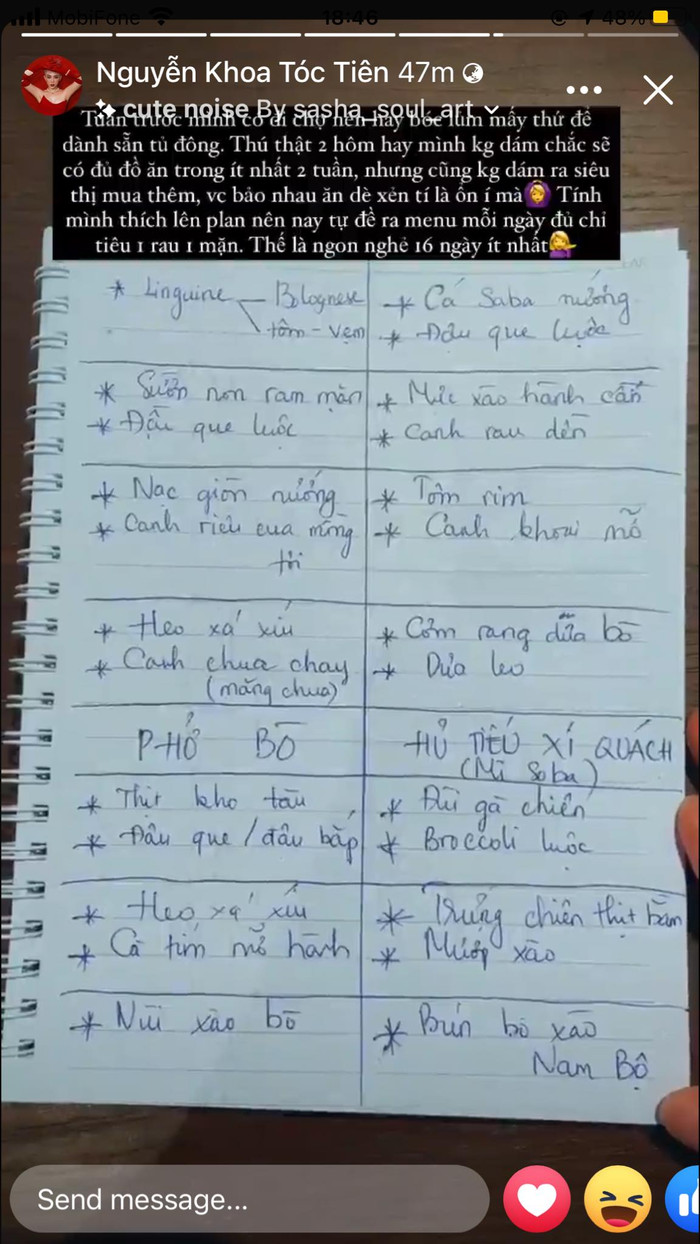 MobiFone 18:46 48%
Nguyễn Khoa Tóc Tiên 47m
cute noise By sasha_soul_art
Tuần trước mình có đi chợ nên hay bóc lủm mấy thứ để
dành sẵn tủ đông. Thú thật 2 hôm hay mình kg dám chắc sẽ
có đủ đồ ăn trong ít nhất 2 tuần, nhưng cũng kg dám ra siêu
thị mua thêm, vc bảo nhau ăn dè xẻn tí là ổn í mà🙆‍♀️ Tính
mình thích lên plan nên nay tự đề ra menu mỗi ngày đủ chỉ
tiêu 1 rau 1 mặn. Thế là ngon nghẻ 16 ngày ít nhất💁‍♀️
* Linguine Bolognese
tôm - vẹm
* Cá Saba nướng
* Đậu que luộc
* Sườn non ram mặn
* Đậu que luộc
* Mực xào hành cần
* Canh rau dền
* Nạc giòn nướng
* Canh riêu cua mồng
tơi
* Tôm rim
* Canh khoai mỡ
* Heo xá xíu
* Canh chua chay
(măng chua)
* Cơm rang dưa bò
* Dưa leo
PHỞ BÒ
HỦ TIẾU XÍ QUÁCH
(Mì Soba)
* Thịt kho tàu
* Đậu que / đậu bắp
* Đùi gà chiên
* Broccoli luộc
* Heo xá xíu
* Cà tím mỡ hành
* Trứng chiên thịt bằm
* Mướp xào
* Nui xào bò
* Bún bò xào
Nam Bộ
Send message...